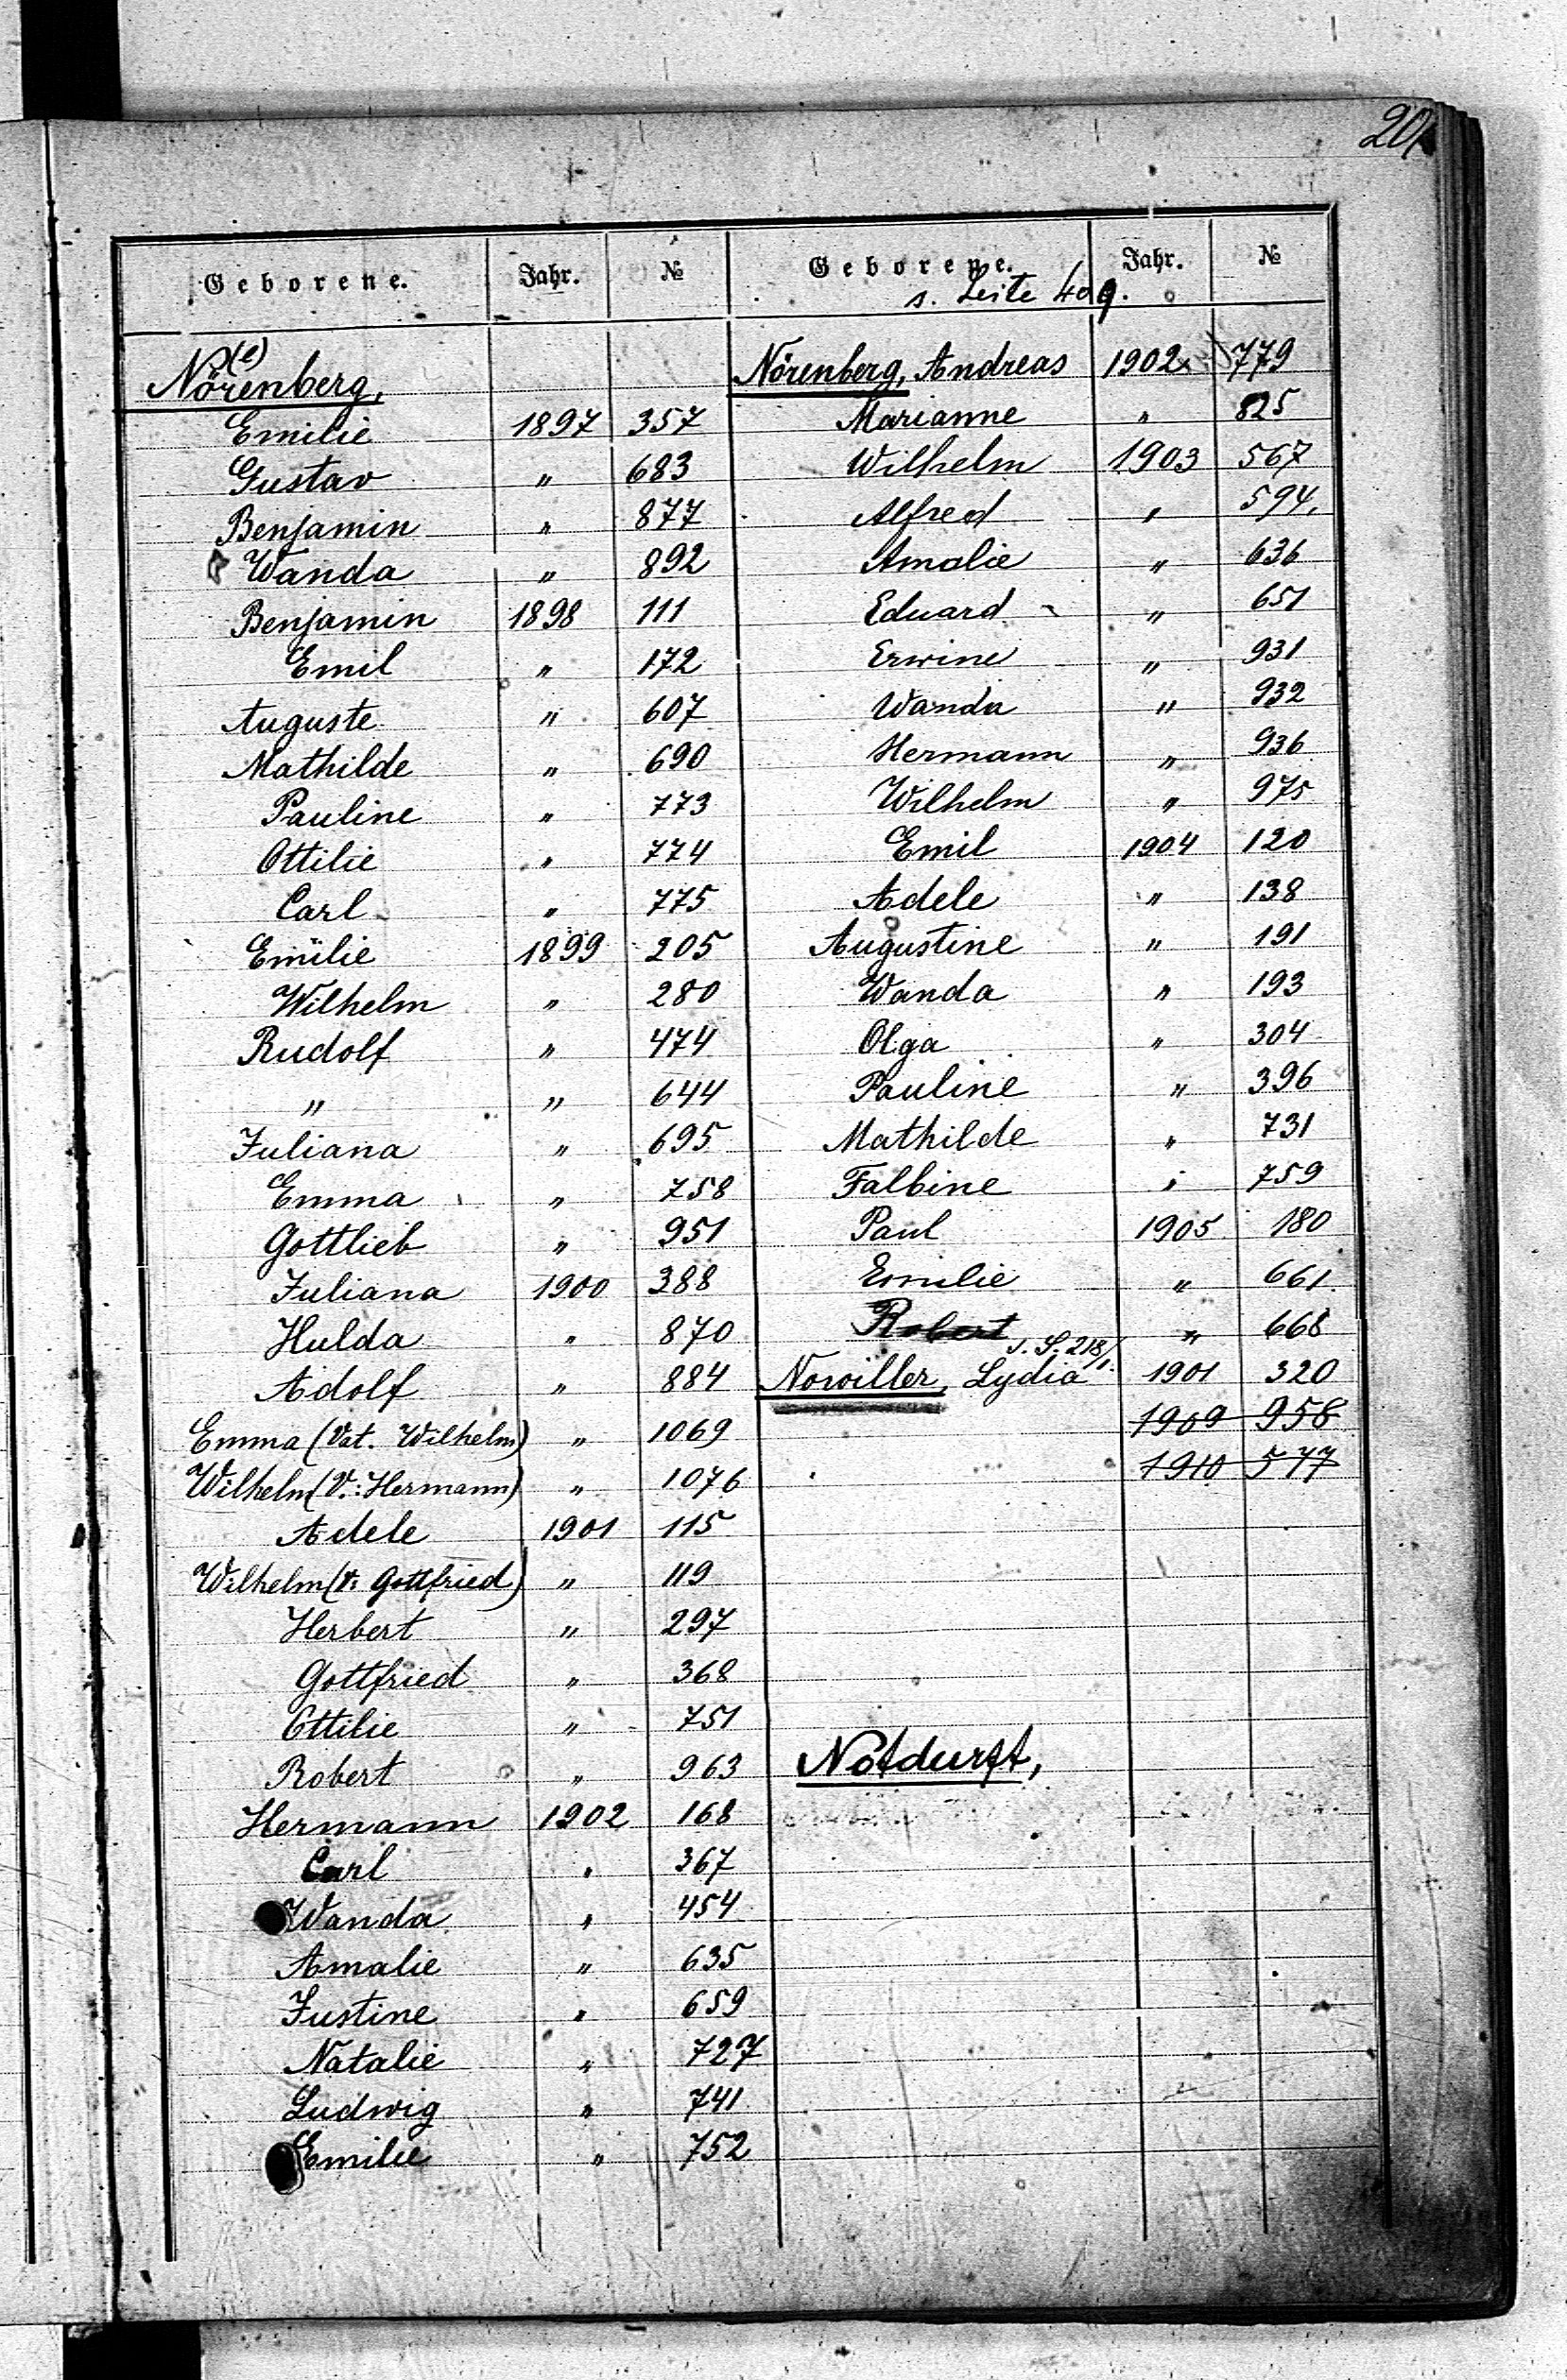 Geborene. Jahr. №
(e)
Nörenberg,
Emilie 1897 357
Gustav " 683
Benjamin " 877
Wanda " 892
Benjamin 1898 111
Emil " 172
Auguste " 607
Mathilde " 690
Pauline " 773
Ottilie " 774
Carl " 775
Emilie 1899 205
Wilhelm " 280
Rudolf " 474
" " 644
Juliana " 695
Emma " 758
Gottlieb " 951
Juliana 1900 388
Hulda " 870
Adolf " 884
Emma (Vat. Wilhelm) " 1069
Wilhelm (V.: Hermann) " 1076
Adele 1901 115
Wilhelm (V: Gottfried) " 119
Herbert " 297
Gottfried " 368
Ottilie " 751
Robert " 963
Hermann 1902 168
Carl " 367
Wanda " 454
Amalie " 635
Justine " 659
Natalie " 727
Ludwig " 741
Emilie " 752
Geborene. Jahr. №
s. Seite 409.
Nörenberg, Andreas 1902 779
Marianne " 825
Wilhelm 1903 567
Alfred " 594.
Amalie " 636
Eduard " 651
Erwine " 931
Wanda " 932
Hermann " 936
Wilhelm " 975
Emil 1904 120
Adele " 138
Augustine " 191
Wanda " 193
Olga " 304
Pauline " 396
Mathilde " 731
Falbine " 759
Paul 1905 180
Emilie " 661
Robert " 668
s. S. 218/1.
Nowiller, Lydia 1901 320
1909 958
1910 577
Notdurft,